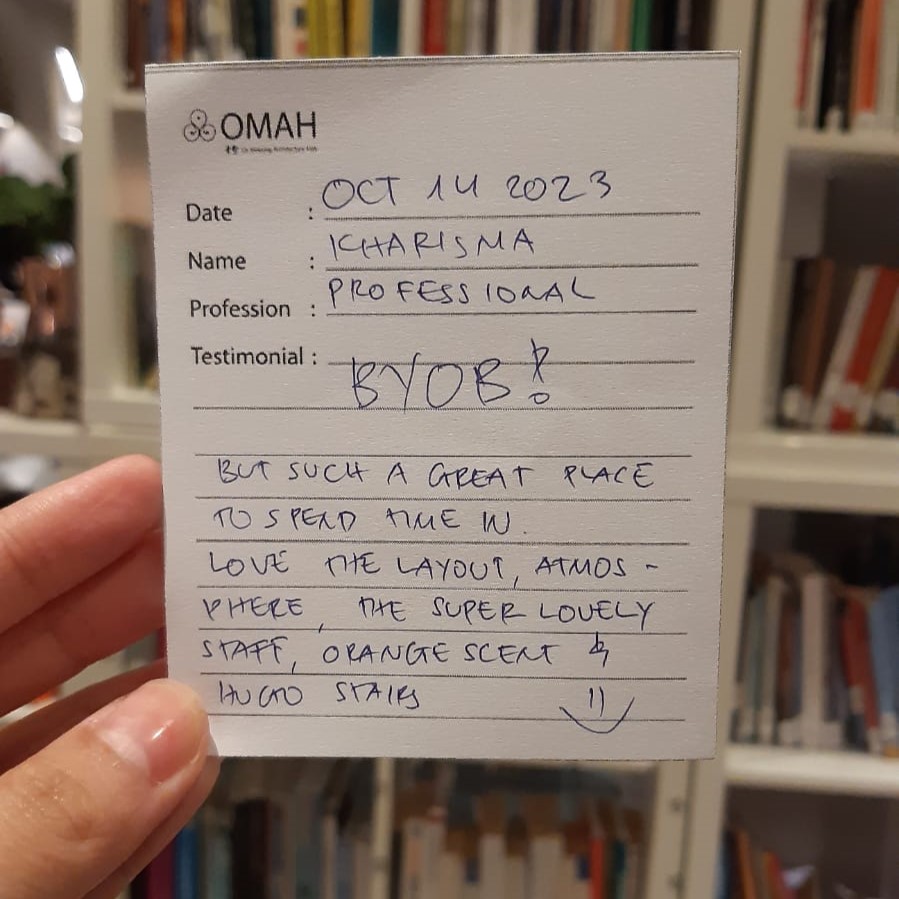 OMAH
Date : OCT 14 2023
Name : KHARISMA
Profession : PROFESSIONAL
Testimonial :
BYOB!
BUT SUCH A GREAT PLACE
TO SPEND TIME IN.
LOVE THE LAYOUT, ATMOS-
PHERE, THE SUPER LOVELY
STAFF, ORANGE SCENT &
HUGO STAIRS